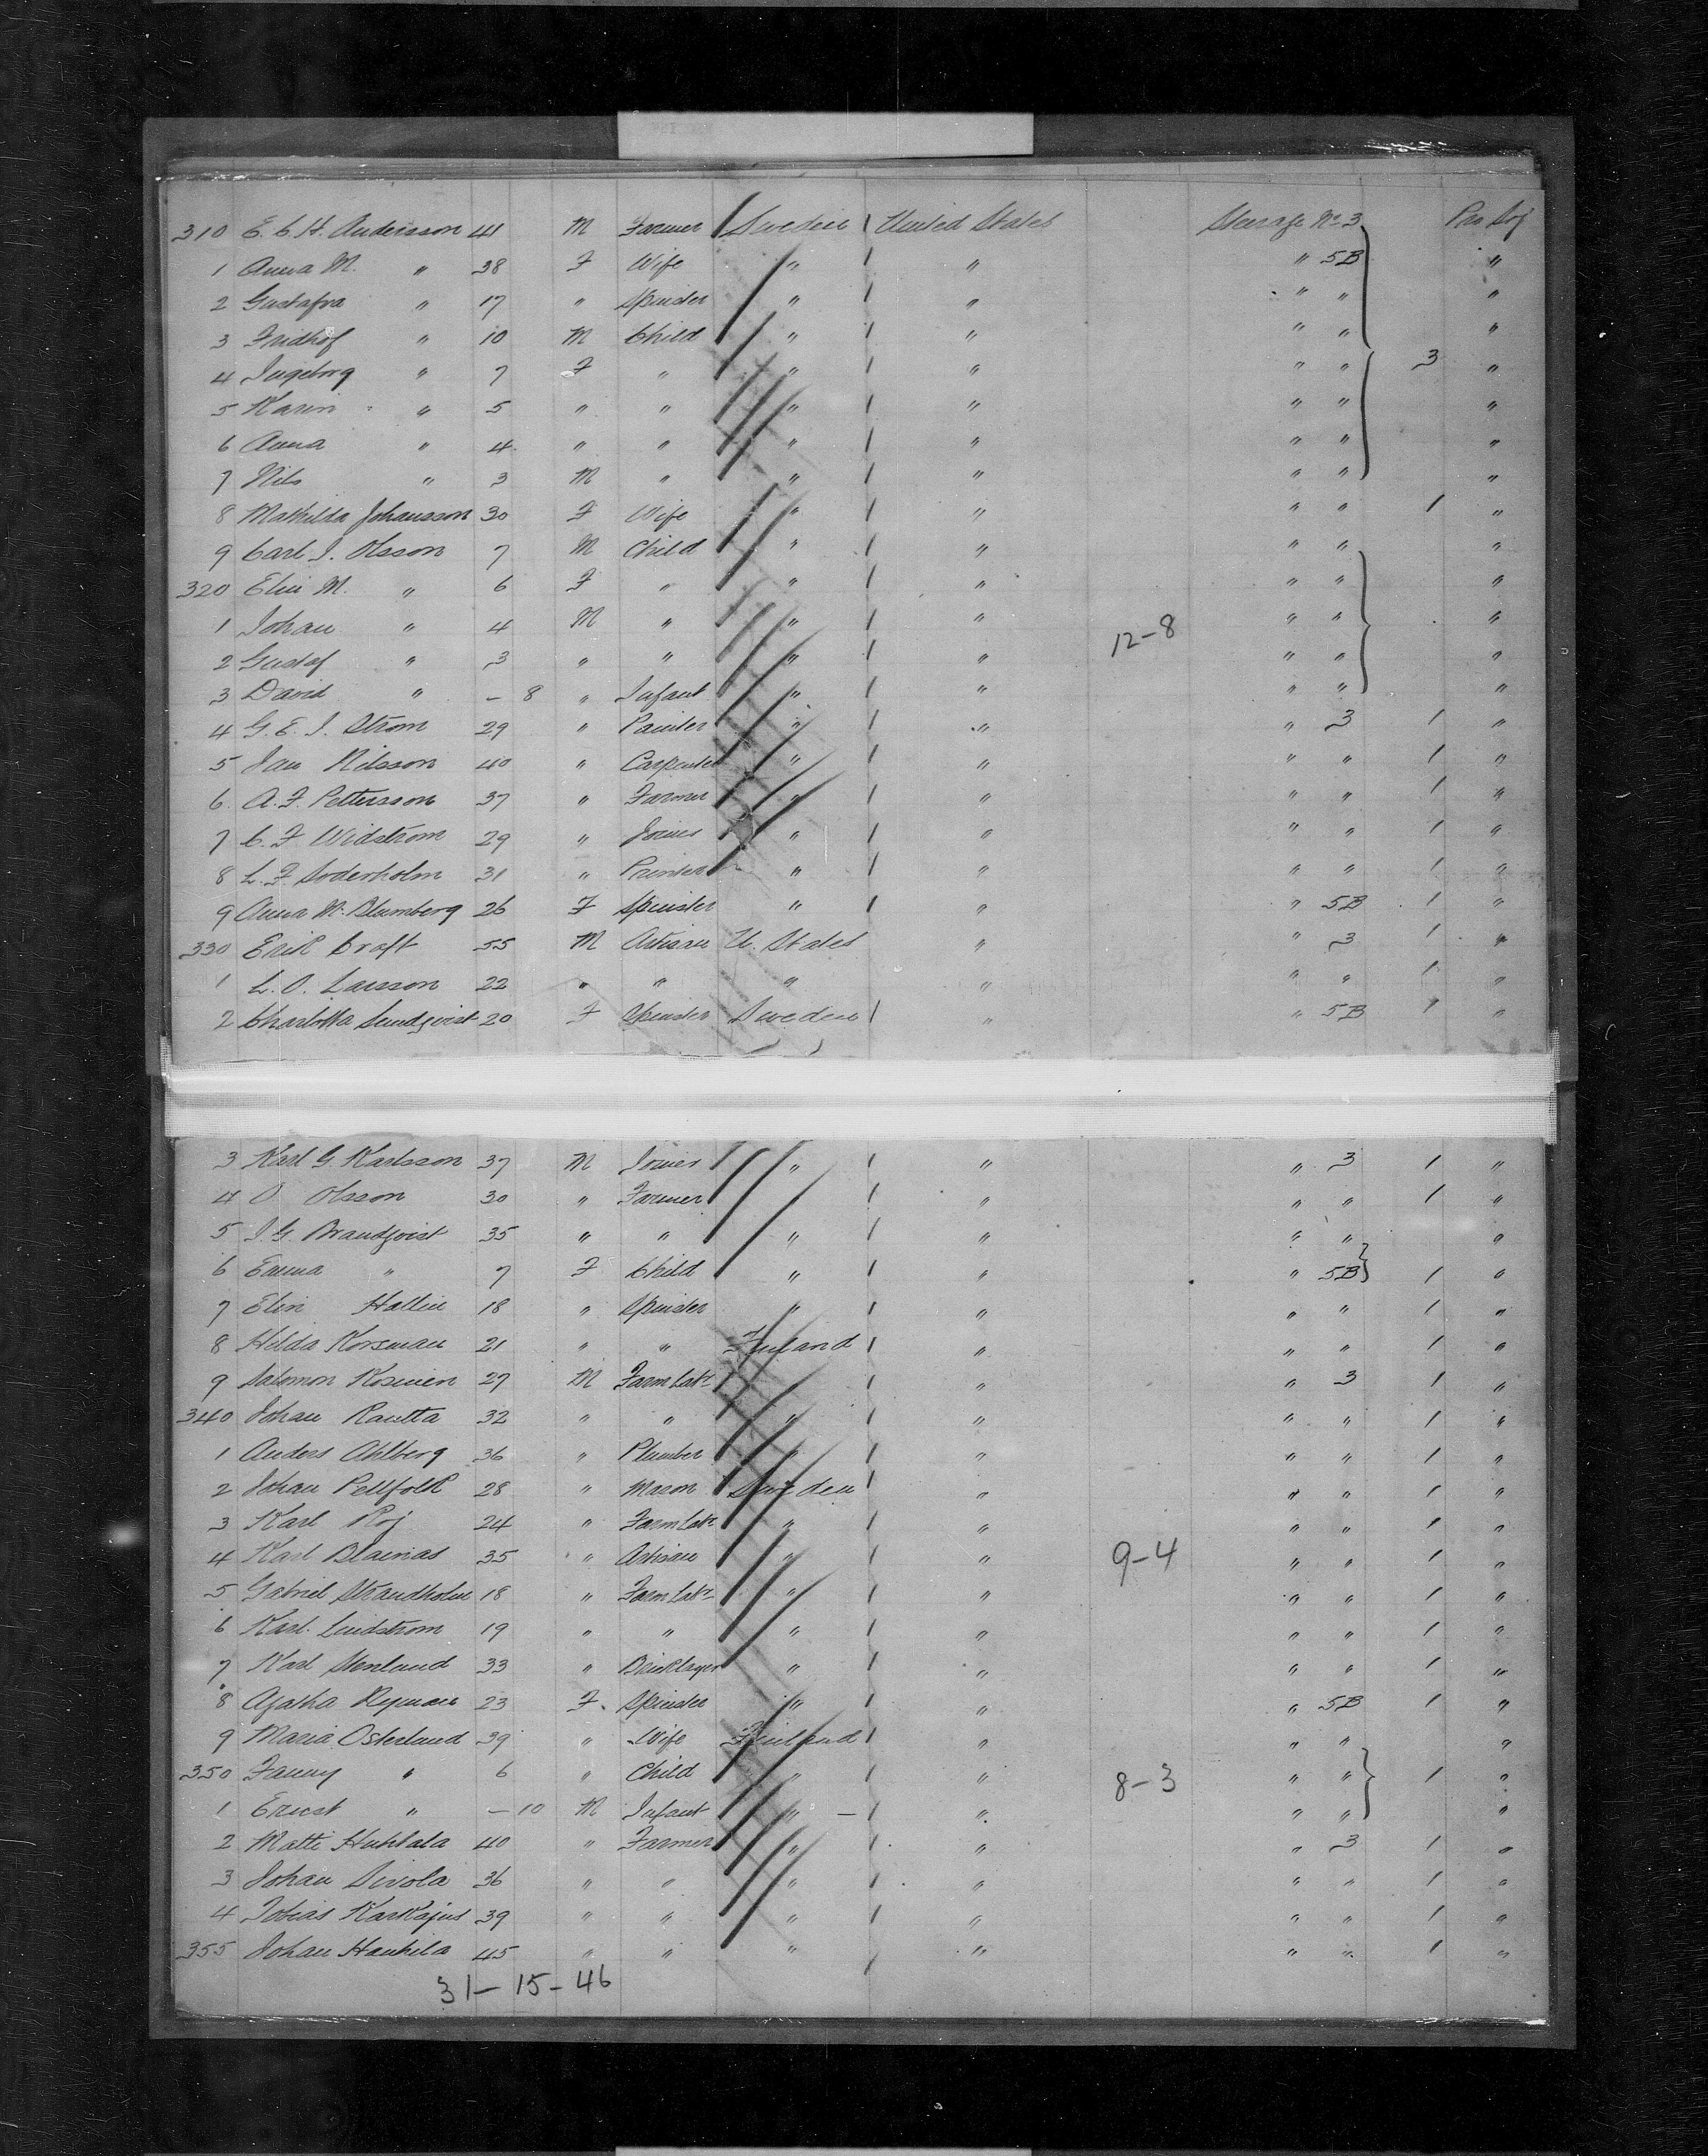 310 E. C. H. Andersson 41 M Farmer Sweden United States Steerage No 3 Pro Soj
1 Anna M. " 38 F Wife " " " 5B "
2 Gustafva " 17 " Spinster " " " " "
3 Fridhof " 10 M Child " " " " "
4 Ingeborg " 7 F " " " " " 3 "
5 Karin " 5 " " " " " " "
6 Anna " 4 " " " " " " "
7 Nils " 3 M " " " " " "
8 Mathilda Johansson 30 F Wife " " " " 1 "
9 Carl J. Olsson 7 M Child " " " " "
320 Elin M. " 6 F " " " " " "
1 Johan " 4 M " " " 12-8 " " "
2 Gustaf " 3 " " " " " " "
3 David " - 8 " Infant " " " " "
4 G. E. J. Strom 29 " Painter " " " 3 1 "
5 Jan Nilsson 40 " Carpenter " " " " 1 "
6 A. F. Pettersson 37 " Farmer " " " " 1 "
7 C. F Widstrom 29 " Joiner " " " " 1 "
8 L. F. Soderholm 31 " Printer " " " " 1 "
9 Anna M. Blumberg 26 F Spinster " " " 5B 1 "
330 Erik Craft 55 M Artisan U. States " " 3 1 "
1 L. O. Larsson 22 " " " " " " 1 "
2 Charlotta Sundqvist 20 F Spinster Sweden " " 5B 1 "
3 Karl G. Karlsson 37 M Joiner " " " 3 1 "
4 O. Olsson 30 " Farmer " " " 1 "
5 J. G. Brandqvist 35 " " " " " " "
6 Emma " 7 F Child " " " 5B 1 "
7 Elin Hallin 18 " Spinster " " " " 1 "
8 Hilda Korsman 21 " " Finland " " " 1 "
9 Salomon Kosinen 27 M Farm Labr " " 3 1 "
340 Johan Rautta 32 " " " " " " 1 "
1 Anders Ahlberg 36 " Plumber " " " " 1 "
2 Johan Pellfolk 28 " Mason Sweden " " " 1 "
3 Karl Roj 24 " Farm Labr " " " " 1 "
4 Karl Blainas 35 " Artisan " " 9-4 " " 1 "
5 Gabriel Strandholm 18 " Farm Labr " " " " 1 "
6 Karl Lindstrom 19 " " " " " " 1 "
7 Karl Stenlund 33 " Bricklayer " " " " 1 "
8 Agatha Nyman 23 F. Spinster " " " 5B 1 "
9 Maria Osterlund 39 " Wife Finland " " " "
350 Fanny " 6 " Child " " 8-3 " " 1 "
1 Ernst " - 10 M Infant " - " " " "
2 Matti Huhtala 40 " Farmer " " " 3 1 "
3 Johan Sivola 36 " " " " " " 1 "
4 Tobias Karkajus 39 " " " " " " 1 "
355 Johan Hauhila 45 " " " " " " 1 "
31-15-46